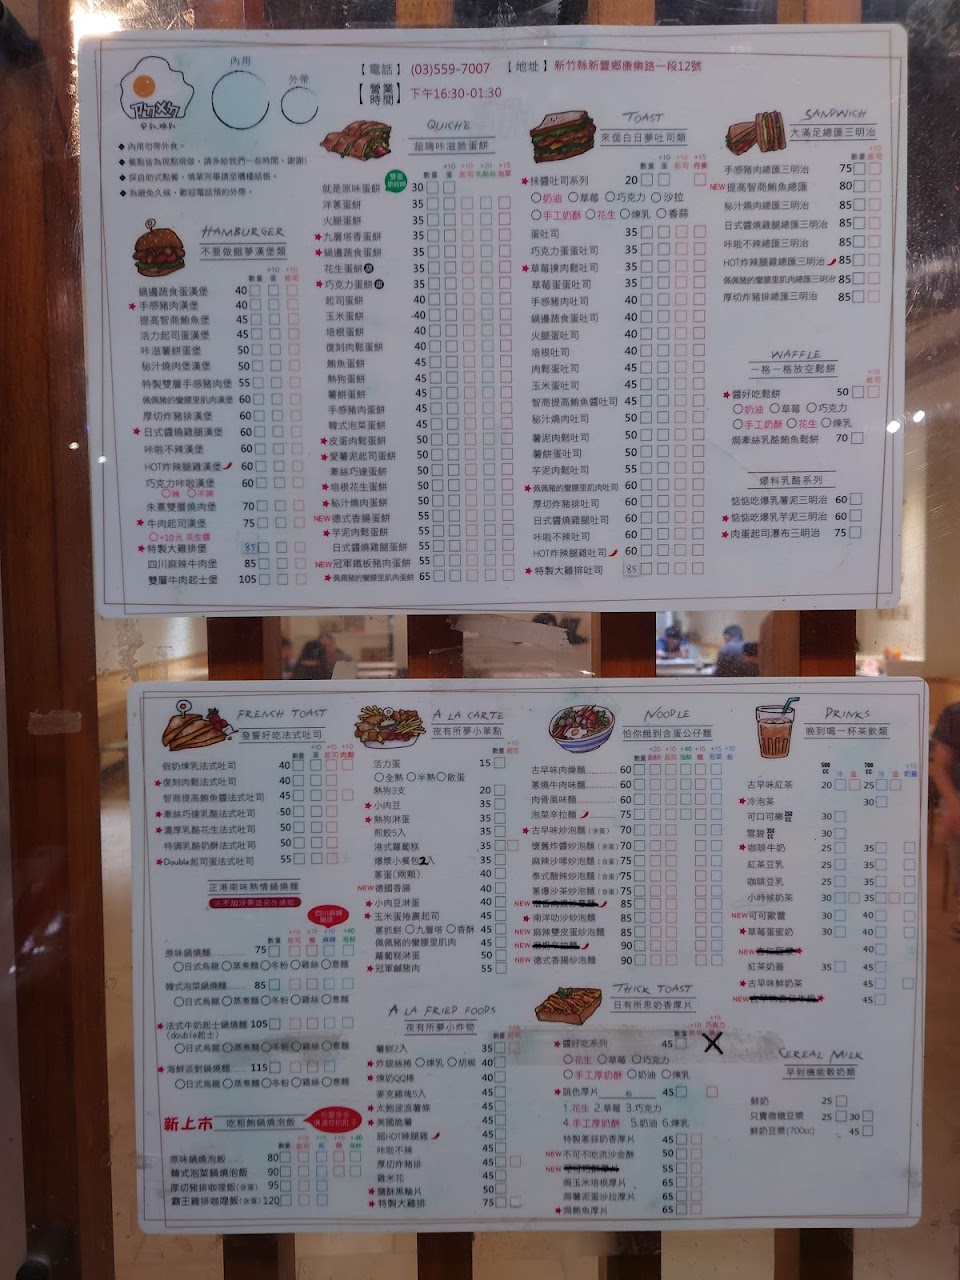 內用
外帶
【電話】 (03)559-7007 【地址】 新竹縣新豐鄉康樂路一段12號
【營業時間】 下午16:30-01:30
早到.晚到
◆內用勿帶外食。
◆餐點皆為現點現做，請多給我們一些時間，謝謝!
◆採自助式點餐，填單完畢請至櫃檯結帳。
◆為避免久候，歡迎電話預約外帶。
HAMBURGER
不要做餓夢漢堡類
數量 +10蛋 +10起司
鍋邊蔬食蛋漢堡 40
★手感豬肉漢堡 40
提高智商鮪魚堡 45
活力起司蛋漢堡 45
咔滋薯餅蛋堡 50
秘汁燒肉堡漢堡 50
特製雙層手感豬肉堡 55
佩佩豬的蠻腰里肌肉漢堡 60
厚切炸豬排漢堡 60
★日式醬燒雞腿漢堡 60
咔啦不辣漢堡 60
HOT炸辣腿雞漢堡 60
巧克力咔啦漢堡 60
○辣 ○不辣
朱熹雙層燒肉堡 70
★牛肉起司漢堡 75
○+10元 花生醬
★特製大雞排堡 85
四川麻辣牛肉堡 85
雙層牛肉起士堡 105
QUICHE
超嗨咔滋脆蛋餅
數量 +10蛋 +10起司 +20乳酪絲 +15泡菜
就是原味蛋餅 30
洋蔥蛋餅 35
火腿蛋餅 35
★九層塔香蛋餅 35
★鍋邊蔬食蛋餅 35
花生蛋餅 35
★巧克力蛋餅 35
起司蛋餅 40
玉米蛋餅 40
培根蛋餅 40
復刻肉鬆蛋餅 40
鮪魚蛋餅 45
熱狗蛋餅 45
薯餅蛋餅 45
手感豬肉蛋餅 45
韓式泡菜蛋餅 45
★皮蛋肉鬆蛋餅 50
★愛薯泥起司蛋餅 50
牽絲巧達蛋餅 50
★培根花生蛋餅 50
★秘汁燒肉蛋餅 55
NEW德式香腸蛋餅 55
★芋泥肉鬆蛋餅 55
日式醬燒雞腿蛋餅 55
NEW冠軍鐵板豬肉蛋餅 55
★佩佩豬的蠻腰里肌肉蛋餅 65
TOAST
來個白日夢吐司類
數量 +10蛋 +10起司 +15丹麥
★抹醬吐司系列 20
○奶油 ○草莓 ○巧克力 ○沙拉
○手工奶酥 ○花生 ○煉乳 ○香蒜
蛋吐司 35
巧克力蛋蛋吐司 35
★草莓撲肉鬆吐司 35
草莓蛋蛋吐司 35
手感豬肉吐司 40
鍋邊蔬食蛋吐司 40
火腿蛋吐司 40
培根吐司 40
肉鬆蛋吐司 40
玉米蛋吐司 40
智商提高鮪魚醬吐司 45
秘汁燒肉吐司 45
薯泥肉鬆吐司 50
薯餅蛋吐司 50
芋泥肉鬆吐司 55
★佩佩豬的蠻腰里肌肉吐司 60
厚切炸豬排吐司 60
日式醬燒雞腿吐司 60
咔啦不辣吐司 60
HOT炸辣腿雞吐司 60
★特製大雞排吐司 85
SANDWICH
大滿足總匯三明治
數量 +10起司
手感豬肉總匯三明治 75
NEW提高智商鮪魚總匯 80
秘汁燒肉總匯三明治 85
日式醬燒雞腿總匯三明治 85
咔啦不辣總匯三明治 85
HOT炸辣腿雞總匯三明治 85
佩佩豬的蠻腰里肌肉總匯三明治 85
厚切炸豬排總匯三明治 85
WAFFLE
一格一格放空鬆餅
+10起司
★醬好吃鬆餅 50
○奶油 ○草莓 ○巧克力
○手工奶酥 ○花生 ○煉乳
焗牽絲乳酪鮪魚鬆餅 70
爆料乳酪系列
惦惦吃爆乳薯泥三明治 60
★惦惦吃爆乳芋泥三明治 60
★肉蛋起司瀑布三明治 75
FRENCH TOAST
發誓好吃法式吐司
數量 +10蛋 +10起司 +10肉鬆
假奶煉乳法式吐司 40
★復刻肉鬆法式吐司 40
智商提高鮪魚醬法式吐司 45
★牽絲巧達乳酪法式吐司 50
★濃厚乳酪花生法式吐司 50
特調乳酪奶酥法式吐司 50
★Double起司蛋法式吐司 55
正港南味熱情鍋燒麵
※不加沙茶請另外通知
四川麻辣鍋底
原味鍋燒麵 75
○日式烏龍 ○蒸煮麵 ○冬粉 ○雞絲 ○意麵
韓式泡菜鍋燒麵 85
○日式烏龍 ○蒸煮麵 ○冬粉 ○雞絲 ○意麵
★法式牛奶起士鍋燒麵 105
(double起士)
○日式烏龍 ○蒸煮麵 ○冬粉 ○雞絲 ○意麵
★海鮮派對鍋燒麵 115
○日式烏龍 ○蒸煮麵 ○冬粉 ○雞絲 ○意麵
新上市 吃粗飽鍋燒泡飯
原味鍋燒泡飯 80
韓式泡菜鍋燒泡飯 90
厚切豬排咖哩飯(含蛋) 95
霸王雞排咖哩飯(含蛋) 120
A LA CARTE
夜有所夢小單點
數量 +10起司
活力蛋 15
○全熟 ○半熟 ○散蛋
熱狗3支 20
★小肉豆 35
★熱狗淋蛋 35
煎餃5入 35
港式蘿蔔糕 35
爆漿小餐包2入 35
蔥蛋(兩顆) 40
NEW德國香腸 40
★小肉豆淋蛋 40
★玉米蛋捲裹起司 45
蔥抓餅 ○九層塔 ○香酥 45
佩佩豬的蠻腰里肌肉 45
蘿蔔糕淋蛋 50
★冠軍鹹豬肉 55
A LA FRIED FOODS
夜有所夢小炸物
薯餅2入 35
★炸銀絲捲 ○煉乳 ○胡椒 40
★煉奶QQ棒 40
麥克雞塊5入 45
★太飽波浪薯條 45
★美國脆薯 45
超HOT辣腿雞 45
咔啦不辣 45
厚切炸豬排 45
雞米花 45
★鹽酥黑輪片 50
★特製大雞排 75
NOODLE
怕你餓到含蛋公仔麵
古早味肉燥麵 60
蔥燒牛肉味麵 60
肉骨風味麵 60
泡菜辛拉麵 60
★古早味炒泡麵(含蛋) 70
懷舊炸醬炒泡麵(含蛋) 75
麻辣沙嗲炒泡麵(含蛋) 75
泰式酸辣炒泡麵(含蛋) 75
蔥爆沙茶炒泡麵(含蛋) 75
NEW 85
★南洋叻沙炒泡麵 85
NEW麻辣雙皮蛋炒泡麵 85
NEW 90
NEW德式香腸炒泡麵 90
THICK TOAST
日有所思奶香厚片
★醬好吃系列 45 X
○花生 ○草莓 ○巧克力
○手工奶酥 ○奶油 ○煉乳
★跳色厚片 45
1.花生 2.草莓 3.巧克力
4.手工厚奶酥 5.奶油 6.煉乳
特製蔥蒜奶香厚片 45
NEW不可不吃流沙金酥 50
NEW 55
焗玉米培根厚片 65
焗薯泥蛋沙拉厚片 65
★焗鮪魚厚片 65
DRINKS
晚到喝一杯茶飲類
500cc 冷 溫 700cc 冷 溫 +15奶蓋
古早味紅茶 20 25
★冷泡茶 30
可口可樂 30
雪碧 30
★咖啡牛奶 25 35
紅茶豆乳 25 35
咖啡豆乳 25 35
小時候奶茶 25 35
NEW可可歐蕾 30 40
★草莓蛋蜜奶 30 40
NEW 40
紅茶奶蓋 35 45
★古早味鮮奶茶 45
NEW 45
CEREAL MILK
早到機能穀奶類
鮮奶 25
只賣微糖豆漿 25 30
鮮奶豆漿(700cc) 45